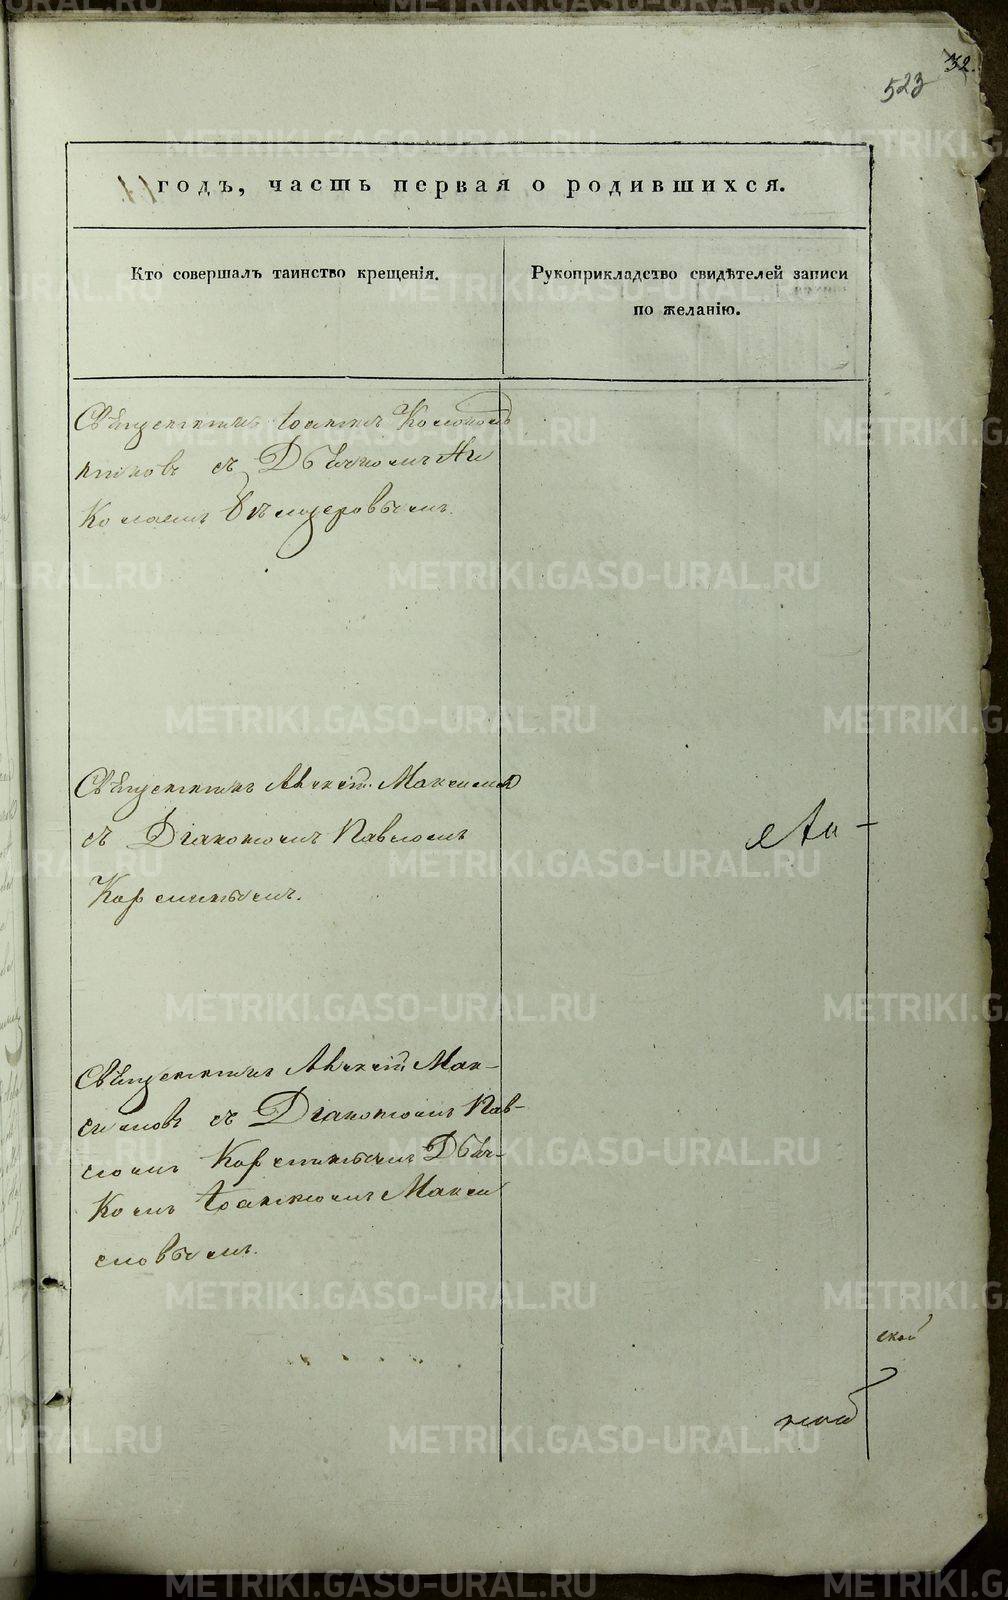 32.
523
годъ, часть первая о родившихся.
Кто совершалъ таинство крещенія.
Рукоприкладство свидѣтелей записи
по желанію.
Священникъ Іоаннъ Колоколь
никовъ съ Дьячкомъ Ни
колаемъ
Священникъ Алексѣй Максимов
съ Діакономъ Павломъ
Священникъ Алексѣй Мак-
симовъ съ Діакономъ Пав-
ломъ Дьяч-
комъ Іоанномъ Макси
мовымъ.
ской
METRIKI.GASO-URAL.RU